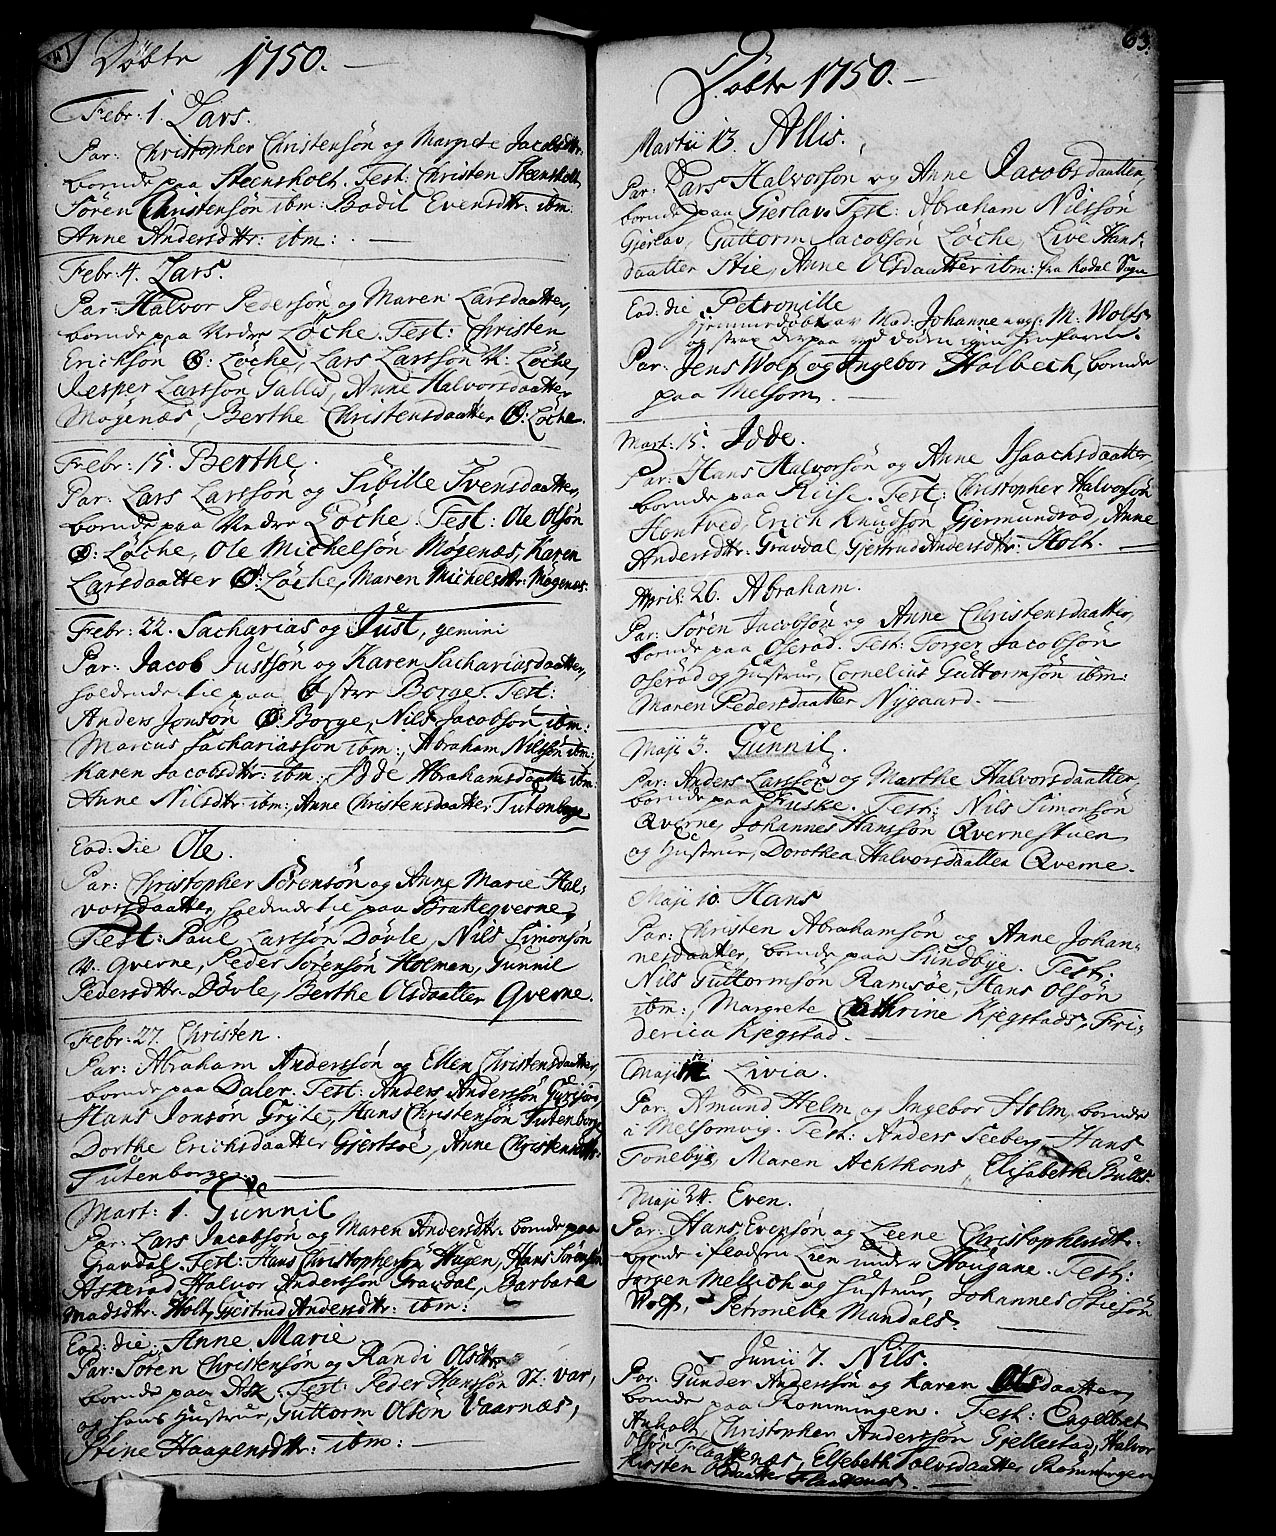 Döbte 1750.
Febr: 1. Lars.
Par: Christopher Christensön og Margrete Jacobsdttr:
boende paa Steensholt. Test: Christen Steensholt
Sören Christensön ibm: Bodil Evensdttr: ibm
Anne Andersdttr: ibm:
Febr: 4. Lars.
Par: Halvor Pedersön og Maren Larsdaatter,
boende paa Nedre Löche. Test: Christen
Erichsön Ø: Löche, Lars Larssön N: Löche,
Jesper Larssön Gallis, Anne Halvorsdaatter
Mögenæs, Berthe Christensdaatter Ø: Löche.
Febr: 15. Berthe.
Par: Lars Larssön og Sibille Ivensdaatter,
boende paa Nedre Löche. Test: Ole Olsön
Ø: Löche, Ole Michelsön Mögenæs, Karen
Larsdaatter Ø: Löche, Maren Michelsdttr: Mögenæs.
Febr: 22. Sacharias og Just, gemini
Par: Jacob Justsön og Karen Sachariasdaatter,
holdende til paa Östre Borge. Test:
Anders Jonsön Ø: Borge, Nils Jacobsön ibm:
Marcus Sachariassön ibm:, Abraham Nilsön ibm:
Karen Jacobsdttr: ibm:, Idde Abrahamsdaatter ibm:
Anne Nilsdttr: ibm:, Anne Christensdaatter Tutenborge
Eod: die Ole.
Par: Christopher Sörensön og Anne Marie Hal-
vorsdaatter, holdende til paa Bratteqverne,
Test: Paul Larssön Dövle, Nils Simonsön
N. Qverne, Peder Sörensön Holmen, Gunnil
Pedersdttr: Dövle, Berthe Olsdaatter Qverne.
Febr: 27. Christen.
Par: Abraham Anderssön og Ellen Christensdaatter,
boende paa Daler. Test: Anders Anderssön
Hans Jonsön Gryte, Hans Christensön Tutenborg
Dorthe Erichsdaatter Gjertsöe, Anne Christensdttr:
Tutenborge.
Mart: 1. Gunnil
Par: Lars Jacobsön og Maren Andersdttr: boende paa
Gravdal. Test: Hans Christophersön Haugen, Hans Sörensön
Askerød, Halvor Anderssön Gravdal, Barbara
Madsdttr: Holt, Gjertrud Andersdttr: ibm:
Eod: die, Anne Marie
Par: Sören Christensön og Randi Olsdttr:
boende paa Ask. Test: Peder Hanssön St. Var,
og hans Hustrue, Guttorm Olsön Vaarnæs,
Stine Haagensdttr: ibm:
63.
Döbte 1750.
Martii 13. Allis.
Par: Lars Halvorsön og Anne Jacobsdaatter,
boende paa Gjerlav. Test: Abraham Nilssön
Gjerlav, Guttorm Jacobsön Löche, Live Hans-
daatter Stie, Anne Olsdaatter ibm: fra Kodal Sogn
Eod: die Petronille
Hjemmedöbt av Mad: Johanne M: Wolfs
og strax derpaa ved döden
Par: Jens Wolf og Ingebor Holbech, boende
paa Melsom.
Mart: 15. Idde.
Par: Hans Halvorsön og Anne Isaachsdaatter,
boende paa Riise. Test: Christopher Halvorsön
Hontved, Erich Knudsön Gjermundrød, Anne
Andersdttr: Gravdal, Gjertrud Andersdttr: Holt.
April: 26. Abraham.
Par: Sören Jacobsön og Anne Christensdaatter,
boende paa Oserød. Test: Torger Jacobsön
Oserød og Hustrue, Cornelius Guttormsön ibm:
Maren Pedersdaatter Nygaard.
Maji 3. Gunnil.
Par: Anders Larssön og Marthe Halvorsdaatter,
boende paa Fuske. Test: Nils Simonsön
Qverne, Johannes Hanssön Qvernestuen
og Hustrue, Dorothea Halvorsdaatter Qverne.
Maji 10. Hans
Par: Christen Abrahamsön og Anne Johan-
nesdaatter, boende paa Sundbye. Test:
Nils Guttormsön Ramsöe, Hans Olsön
ibm:, Margrete Cathrine Kjegstads, Fri-
derica Kjegstad.
Maji Livia.
Par: Amund Helm og Ingebor Holm, boende
i Melsomvig. Test: Anders Seeberg, Hans
Tonebye, Maren Achthons, Elisabeth Bulls.
Maji 24. Even.
Par: Hans Evensön og Leene Christophersdttr:
boende i Pladsen Lien under Haugane. Test:
Jörgen Melsom og Hustrue, Johannes Stiesön
Wolf, Petronelle Mandals.
Junii 7. Nils.
Par: Gunder Anderssön og Karen Olsdaatter,
boende paa Rommingen. Test: Engelbret
Anholt, Christopher Anderssön Gjellestad, Halvor
Olsön Flaatenæs, Elsebeth Tolvsdaatter Römmingen
Kirsten Olsdaatter Flaatenæs.